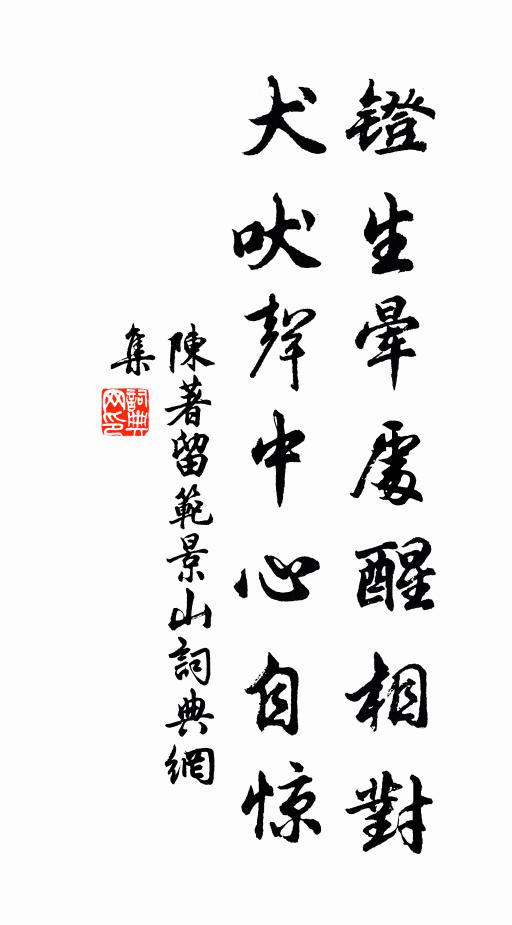 镫生晕處醒相對
犬吠聲中心自惊
陳著留範景山詞典網
集
詞典
网印